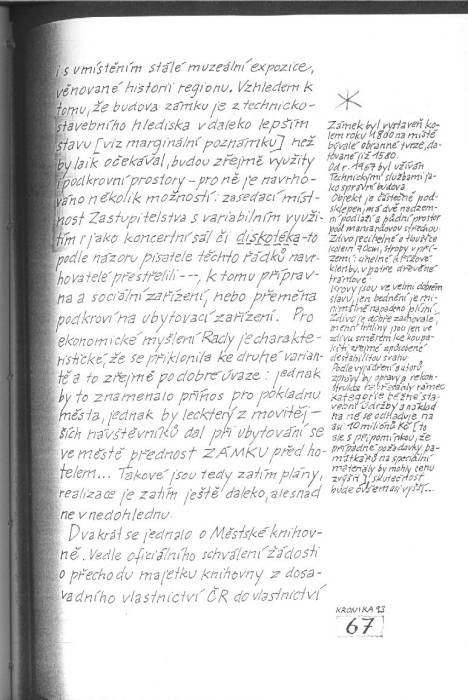 i s umístěním stálé muzeální expozice,
věnované historii regionu. Vzhledem k
tomu, že budova zámku je z technicko-
stavebního hlediska v daleko lepším
stavu [viz marginální poznámku] než
by laik očekával, budou zřejmě využity
i podkrovní prostory – pro ně je navrho-
váno několik možností: zasedací míst-
nost Zastupitelstva s variabilním využi-
tím i jako koncertní sál či diskotéka - to
podle názoru pisatele těchto řádků navr-
hovatelé přestřelili ---, k tomu příprav-
na a sociální zařízení, nebo přeměna
podkroví na ubytovací zařízení. Pro
ekonomické myšlení Rady je charakte-
ristické, že se přiklonila ke druhé varian-
tě a to zřejmě po dobré úvaze: jednak
by to znamenalo přínos pro pokladnu
města, jednak by leckterý z movitěj-
ších návštěvníků dal při ubytování se
ve městě přednost ZÁMKU před ho-
telem... Takové jsou tedy zatím plány,
realizace je zatím ještě daleko, ale snad
ne v nedohlednu.
Dvakrát se jednalo o Městské knihov-
ně. Vedle oficiálního schválení žádosti
o přechodu majetku knihovny z dosa-
vadního vlastnictví ČR do vlastnictví
Zámek byl vystavěn ko-
lem roku 1800 na místě
bývalé obranné tvrze, da-
tované již 1580.
Od r. 1967 byl užíván
Technickými službami ja-
ko správní budova
Objekt je částečně pod-
sklepen, má dvě nadzem-
ní podlaží a půdní prostor
pod mansardovou střechou.
Zdivo je cihelné o tloušťce
kolem 90cm, stropy v pří-
zemí: cihelné křížové
klenby, v patře dřevěné
trámové
Krovy jsou ve velmi dobrém
stavu, jen bednění je mi-
nimálně napadeno plísní.
Zdivo je dobře zachovalé,
menší trhliny jsou jen ve
zdivu směrem ke koupa-
lišti zřejmě způsobené
destabilitou svahu
Podle vyjádření autorů
zprávy by opravy a rekon-
strukce nepřesáhly rámec
kategorie běžné sta-
vební údržby a náklad
na ně se odhaduje na
asi 10 milionů Kč [to
ale s připomínkou, že
případné požadavky pa-
mátkářů na speciální
materiály by mohly cenu
zvýšit]; skutečnost
bude ovšem asi vyšší...
KRONIKA 93
67